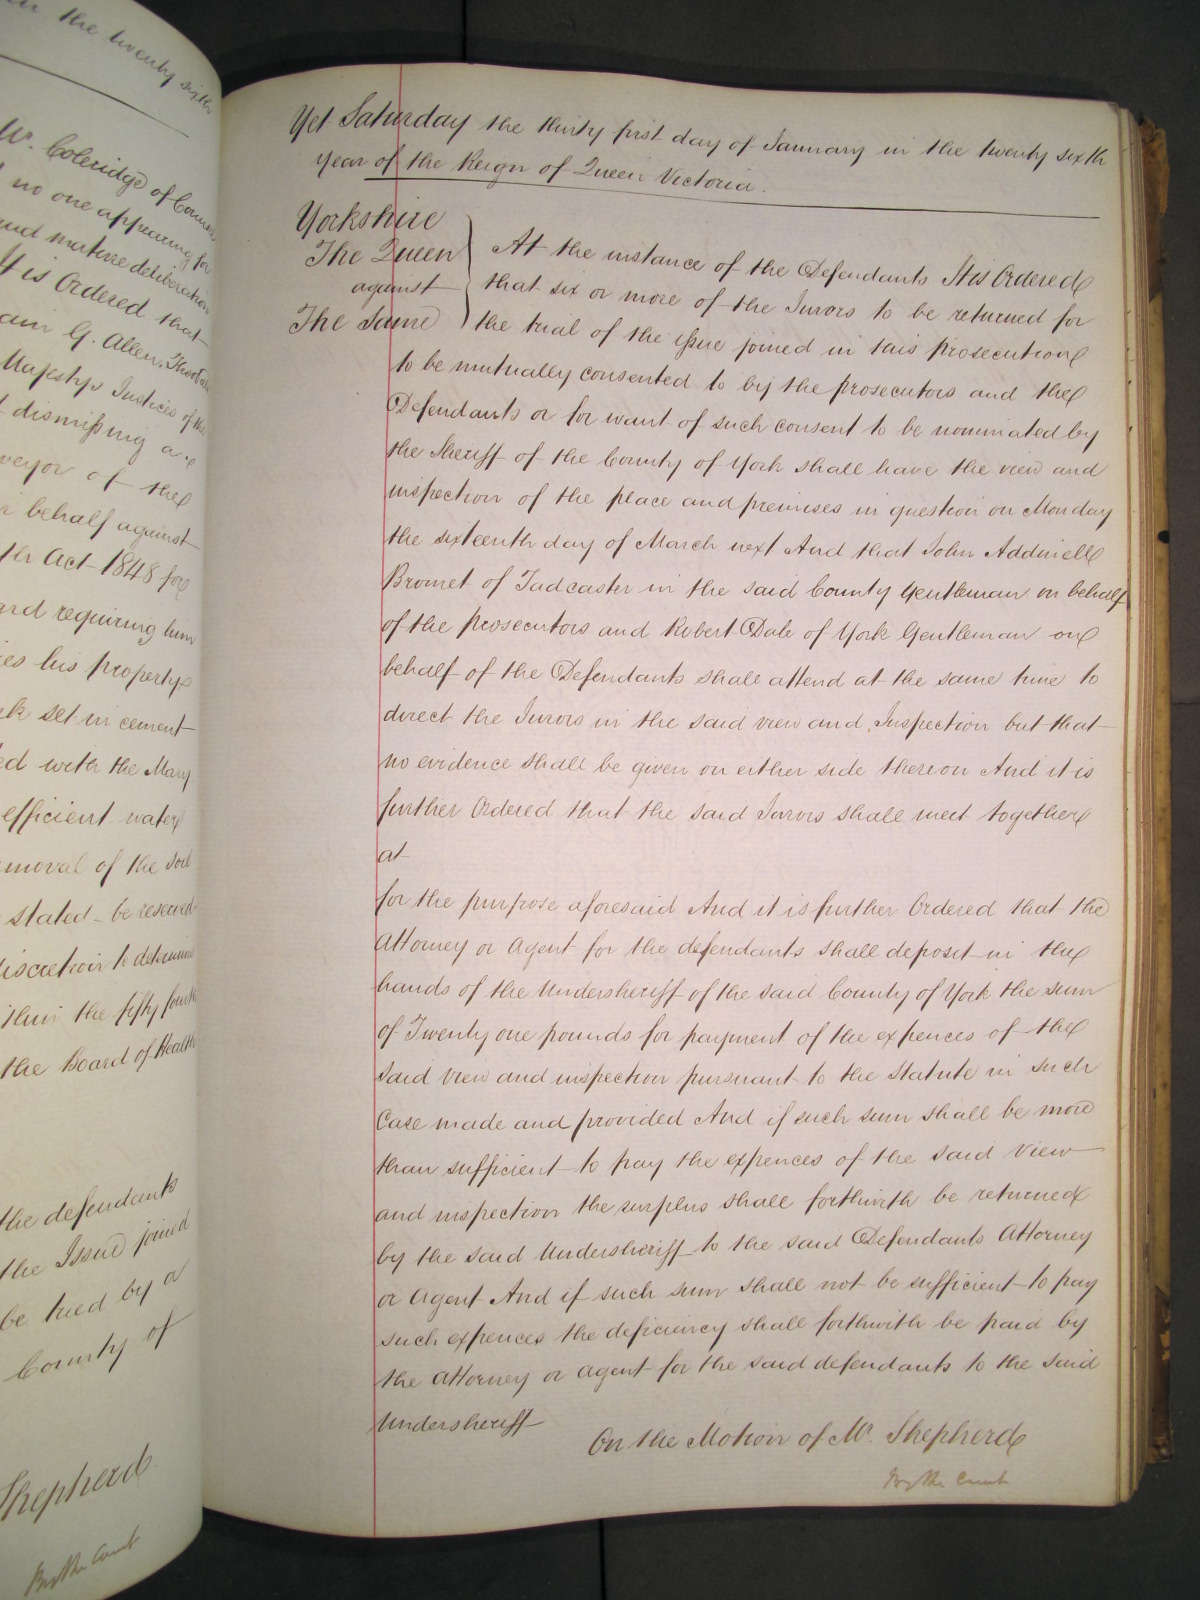 in the twenty sixth
Mr. Coleridge of Counsel
no one appearing for
and mature deliberation
It is Ordered that
G. Allen,
Majestys Justices of the
dismissing a
veyor of the
behalf against
th Act 1848 for
ard requiring him
ies his property
set in cement
ed with the Many
efficient water
moval of the soil
stated be reserved
discretion to determine
thin the fifty fourth
the Board of Health
the defendants
the Issue joined
be tried by a
County of
Shepherd
By the Court
Yet Saturday the thirty first day of January in the twenty sixth
year of the Reign of Queen Victoria.
Yorkshire
The Queen
against
The Same
At the instance of the Defendants It is Ordered
that six or more of the Jurors to be returned for
the trial of the issue joined in this prosecution
to be mutually consented to by the prosecutors and the
Defendants or for want of such consent to be nominated by
the Sheriff of the County of York shall have the view and
inspection of the place and premises in question on Monday
the sixteenth day of March next And that John Addinell
Bromet of Tadcaster in the said County Gentleman on behalf
of the prosecutors and Robert Dale of York Gentleman on
behalf of the Defendants shall attend at the same time to
direct the Jurors in the said view and Inspection but that
no evidence shall be given on either side thereon And it is
further Ordered that the said Jurors shall meet together
at
for the purpose aforesaid And it is further Ordered that the
Attorney or Agent for the defendants shall deposit in the
hands of the Undersheriff of the said County of York the sum
of Twenty one pounds for payment of the expences of the
said view and inspection pursuant to the Statute in such
Case made and provided And if such sum shall be more
than sufficient to pay the expences of the said View
and inspection the surplus shall forthwith be returned
by the said Undersheriff to the said Defendants Attorney
or Agent And if such sum shall not be sufficient to pay
such expences the deficiency shall forthwith be paid by
the Attorney or Agent for the said defendants to the said
Undersheriff
On the Motion of Mr. Shepherd
By the Court